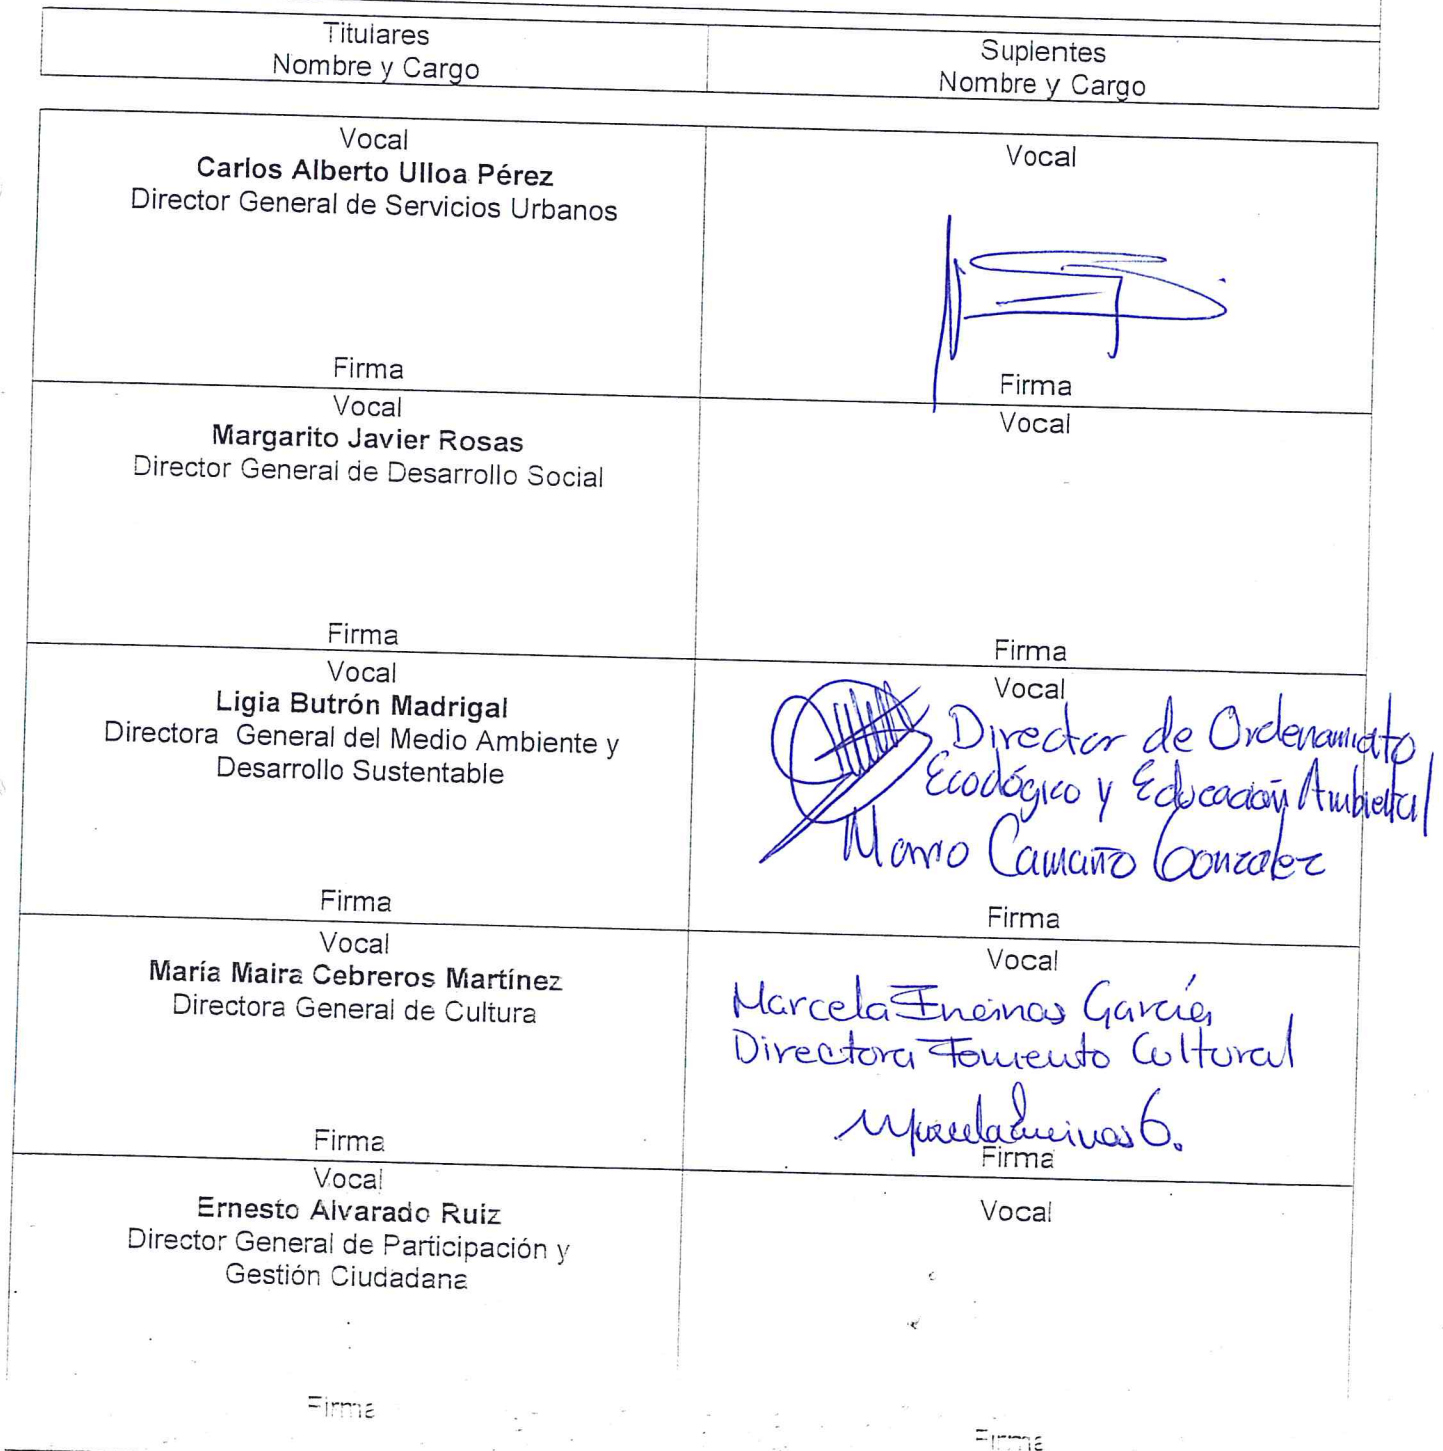 Titulares
Nombre y Cargo
Suplentes
Nombre y Cargo
Vocal
Carlos Alberto Ulloa Pérez
Director General de Servicios Urbanos
Firma
Vocal
Firma
Vocal
Margarito Javier Rosas
Director General de Desarrollo Social
Firma
Vocal
Firma
Vocal
Ligia Butrón Madrigal
Directora General del Medio Ambiente y
Desarrollo Sustentable
Firma
Vocal
Director de Ordenamiato
Ecológico y Educación Ambiental
Camaño Gonzalez
Firma
Vocal
María Maira Cebreros Martínez
Directora General de Cultura
Firma
Vocal
Marcela Encinas García
Directora Fomento Cultural
Marcela Encinas G.
Firma
Vocal
Ernesto Alvarado Ruiz
Director General de Participación y
Gestión Ciudadana
Firma
Vocal
Firma